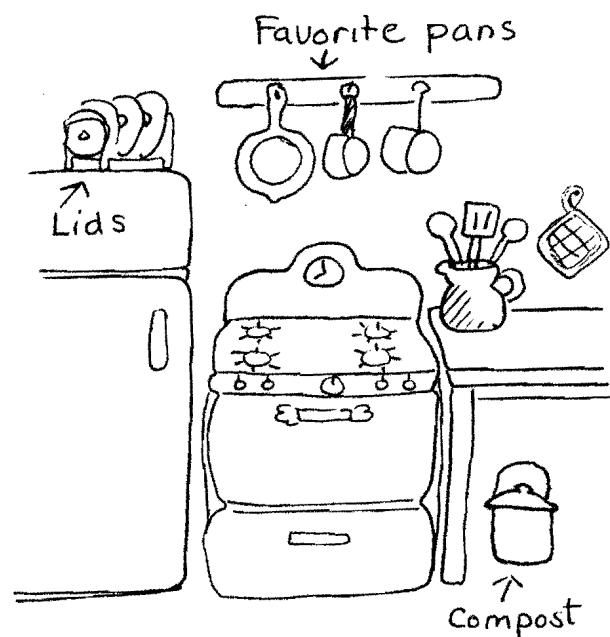 Favorite pans
Lids
Compost